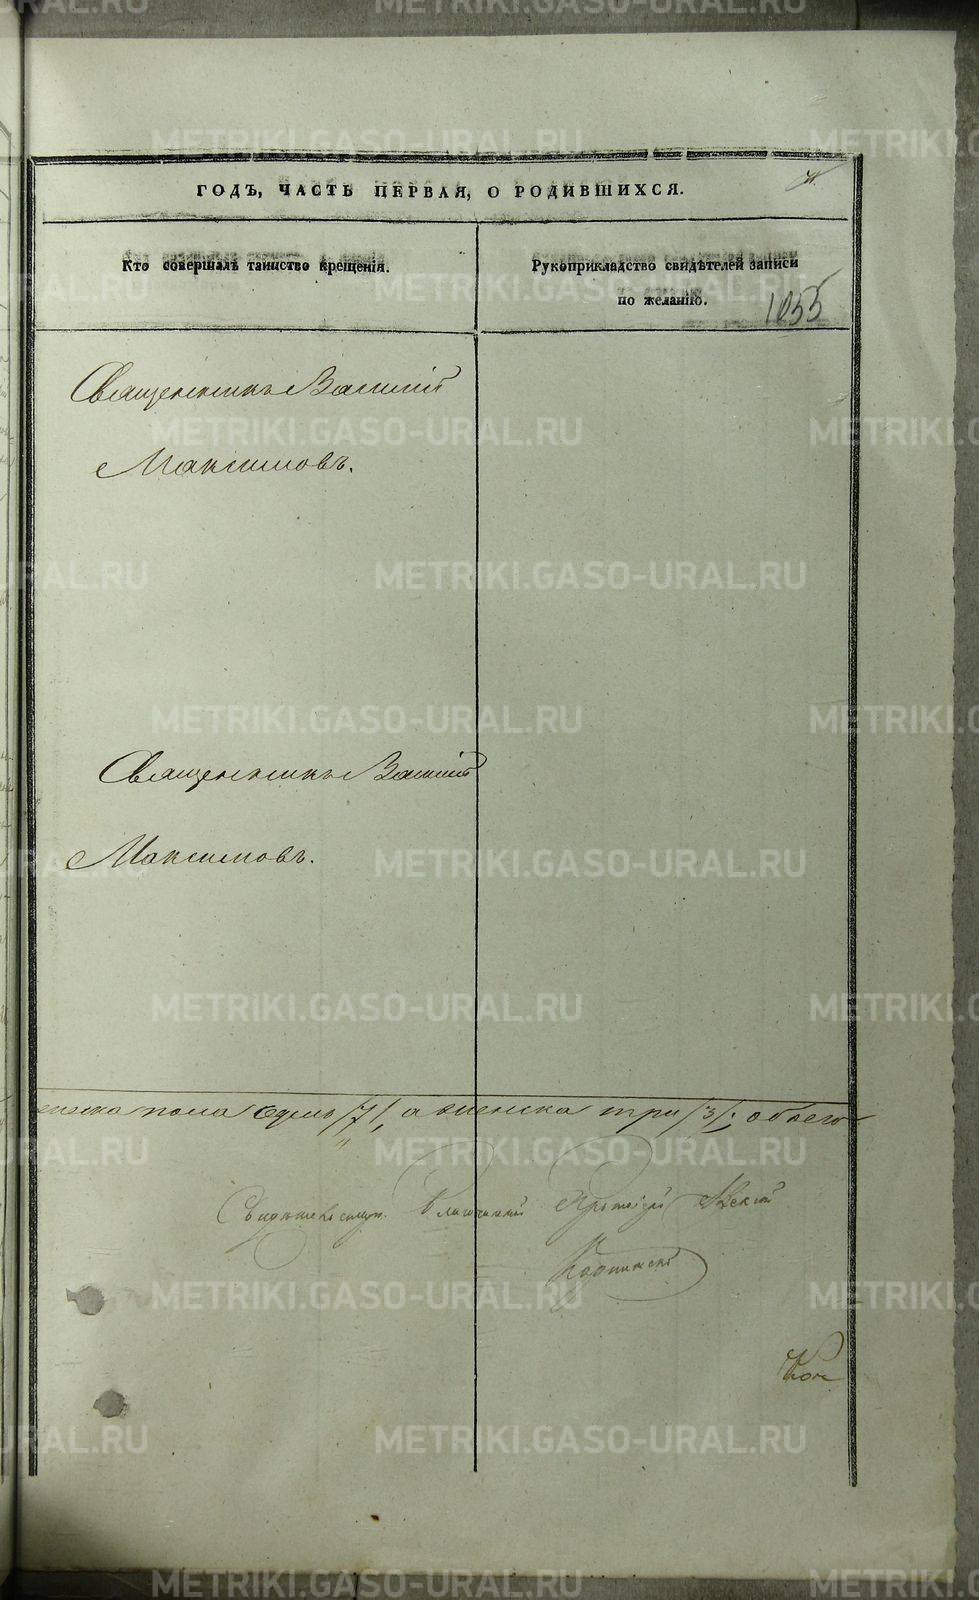 ГОДЪ, ЧАСТЬ ПЕРВАЯ, О РОДИВШИХСЯ.
Кто совершалъ таинство крещенія.
Рукоприкладство свидѣтелей записи
по желанію.
1055
Священникъ Василій
Максимовъ.
Священникъ Василій
Максимовъ.
пола седмь /7/, а женска три /3/; обоего
Благочинный Протоіерей
METRIKI.GASO-URAL.RU